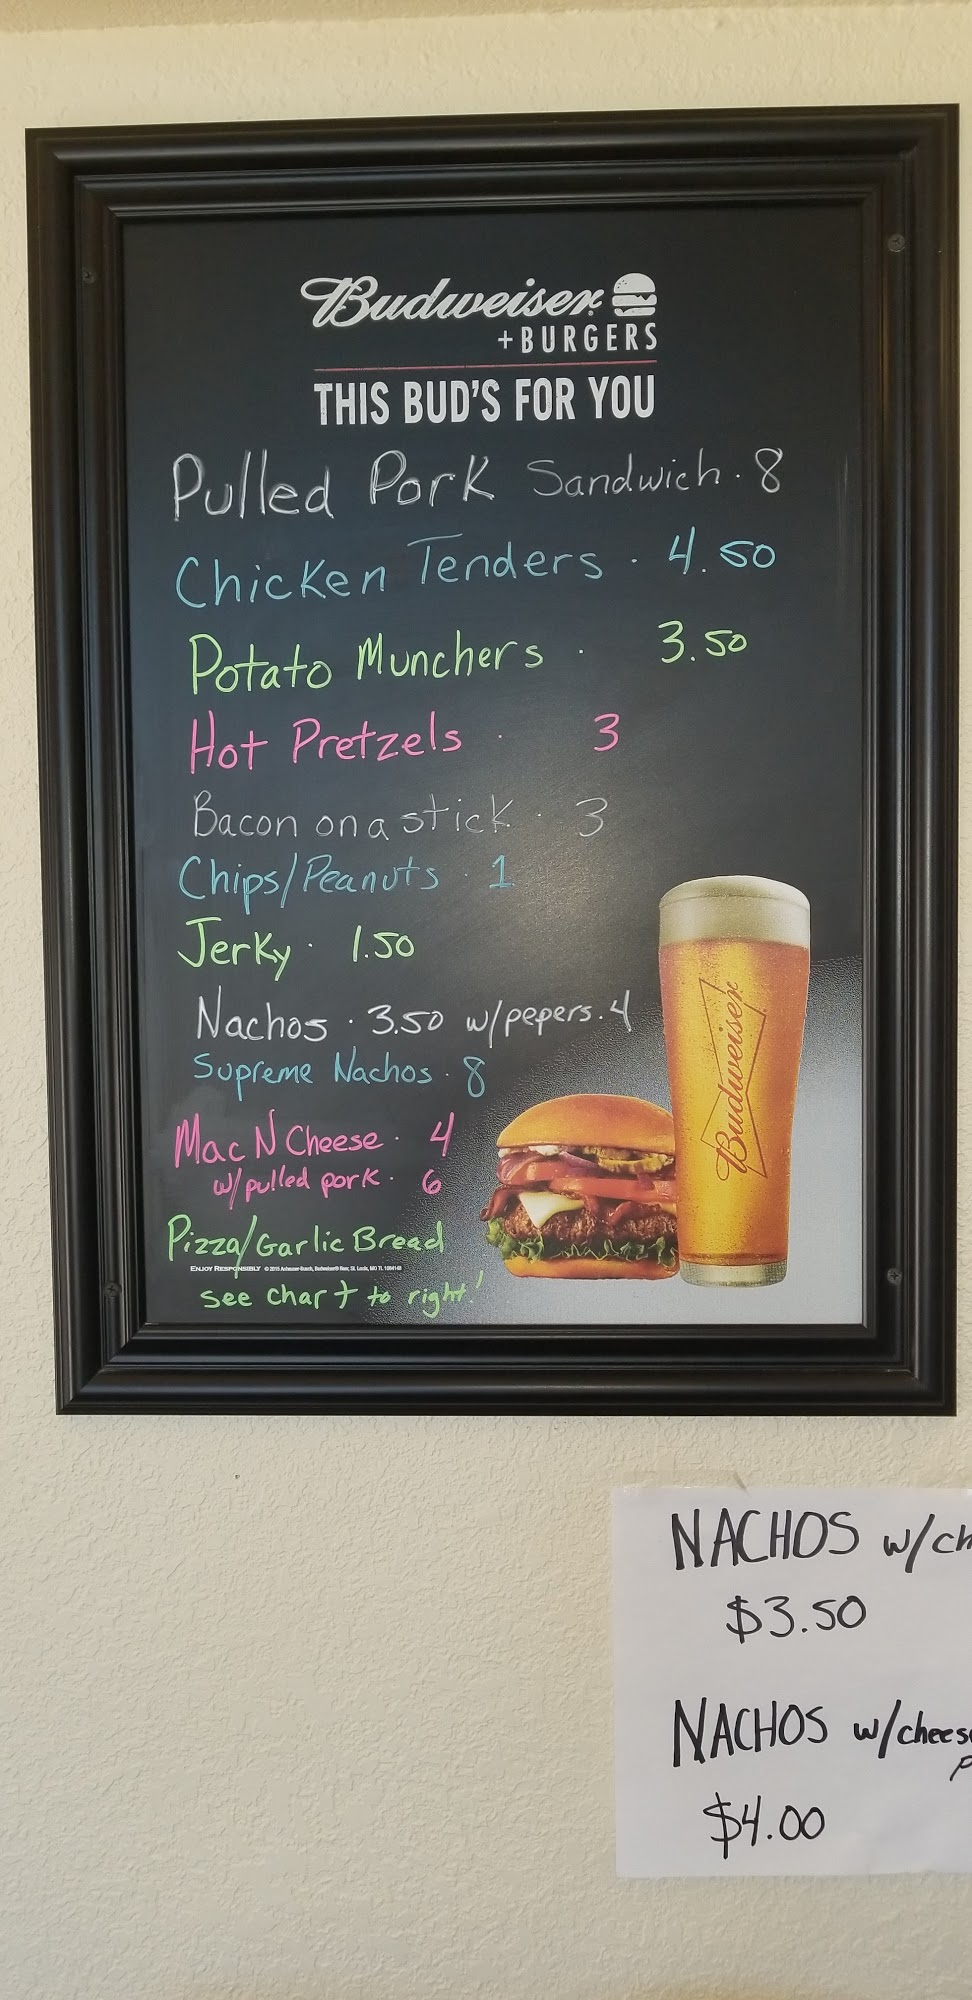 Budweiser
+BURGERS
THIS BUD'S FOR YOU
Pulled Pork Sandwich · 8
Chicken Tenders · 4.50
Potato Munchers · 3.50
Hot Pretzels · 3
Bacon on a stick · 3
Chips/Peanuts · 1
Jerky · 1.50
Nachos · 3.50 w/pepers. 4
Supreme Nachos · 8
Mac N Cheese · 4
w/pulled pork · 6
Pizza/Garlic Bread
ENJOY RESPONSIBLY
see chart to right!
Budweiser
NACHOS w/ch
$3.50
NACHOS w/chees
$4.00